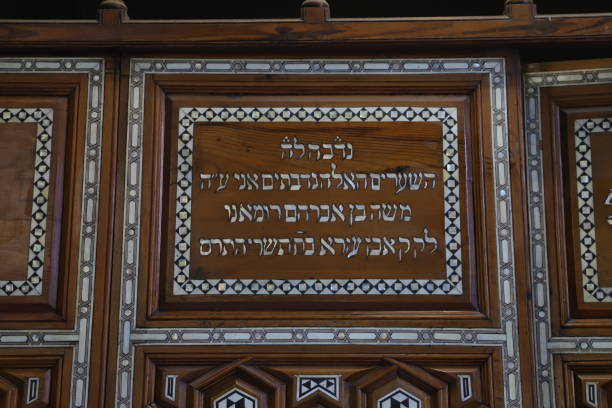 נדבה לה'
השערים האלה נדבתים אני ע"ה
משה בן אברהם רומאנו
לק"ק אבן עזרא בח' תשרי התרס